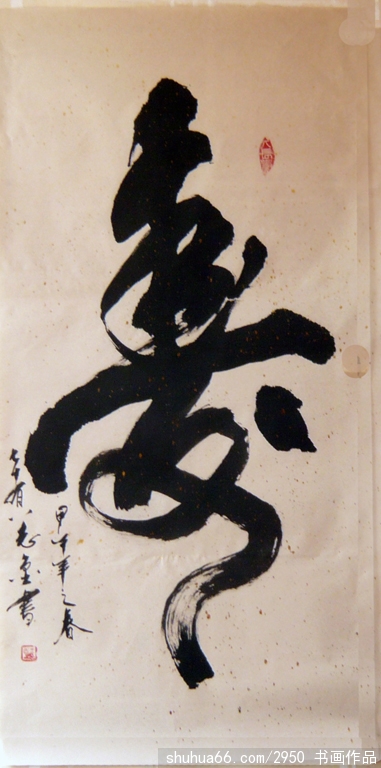 壽
甲午年之春
七十有八志書
shuhua66.com/2950 书画作品